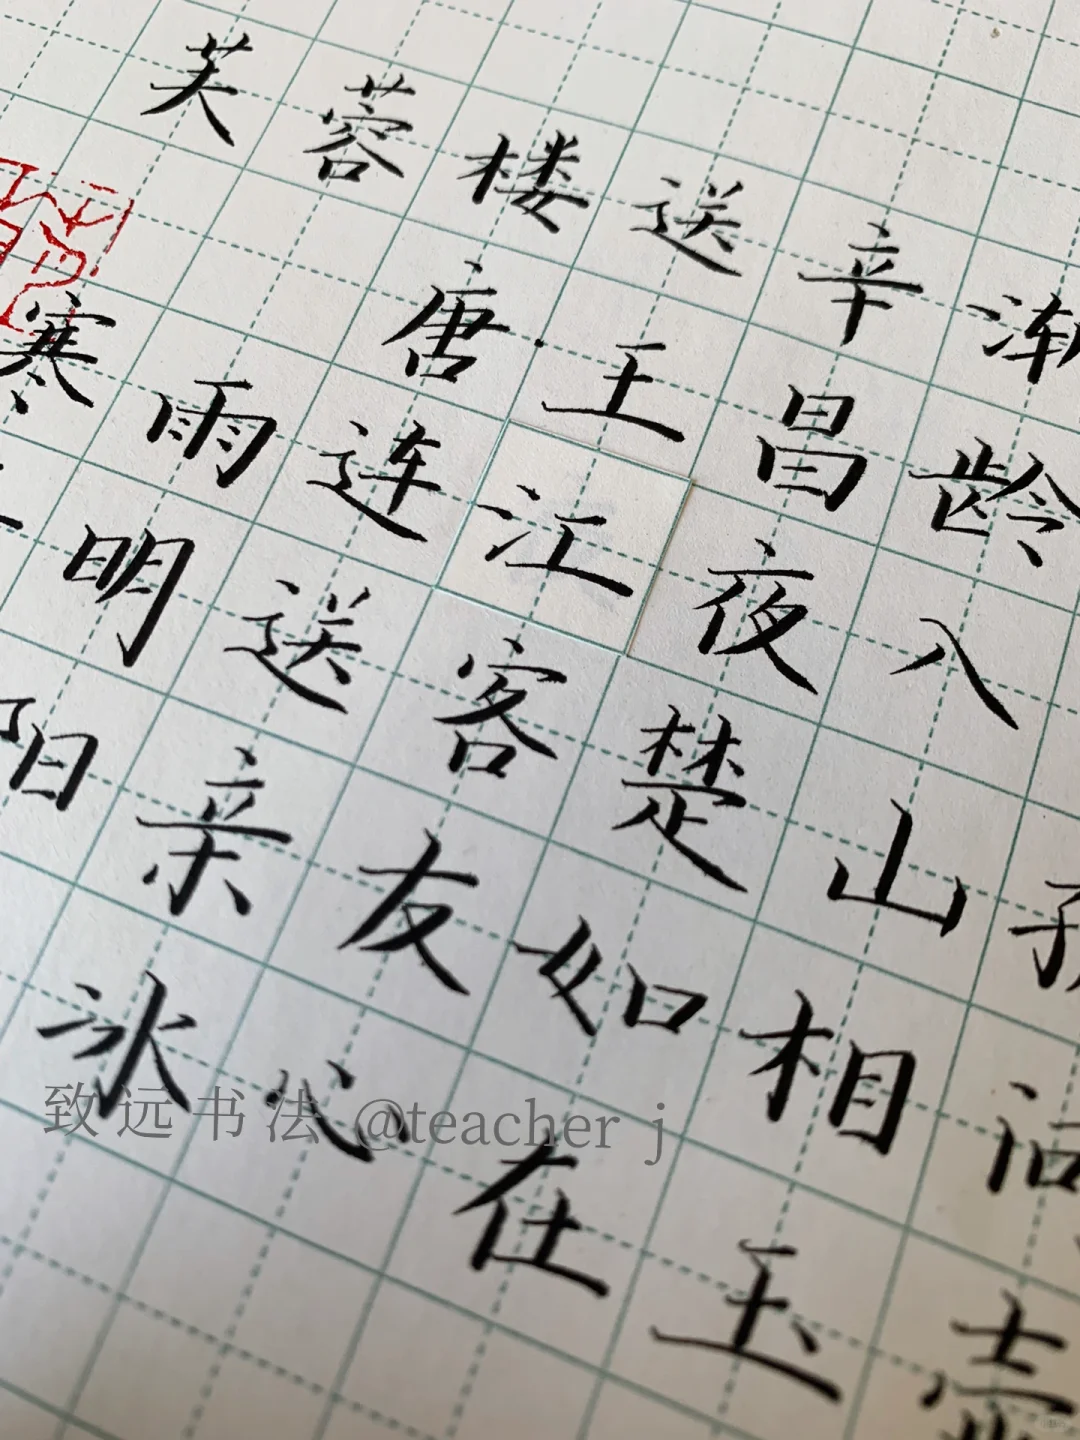 芙蓉楼送辛渐
唐·王昌龄
寒雨连江夜入
明送客楚山孤
阳亲友如相问
冰心在玉壶
致远书法 @teacher j